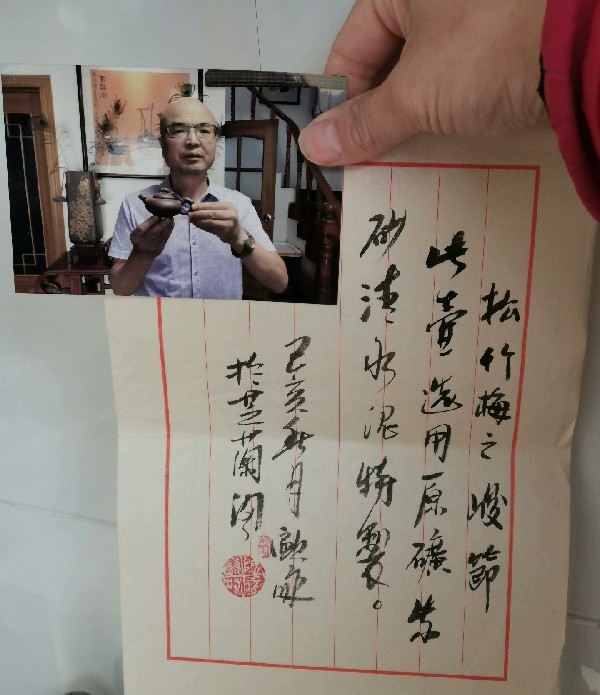 松竹梅之峻節
此壺選用原礦紫
砂清水泥特製。
己亥秋月
於芝蘭閣